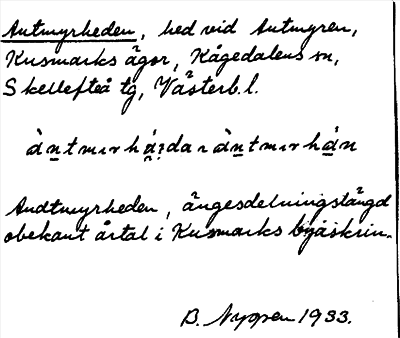 Antmyrheden, hed vid Antmyren,
Kusmarks ägor, Kågedalens sn,
Skellefteå tg, Västerb. l.
Andtmyrheden, ängesdelningslängd
obekant årtal i Kusmarks byaskrin.
B. Nyppen 1933.